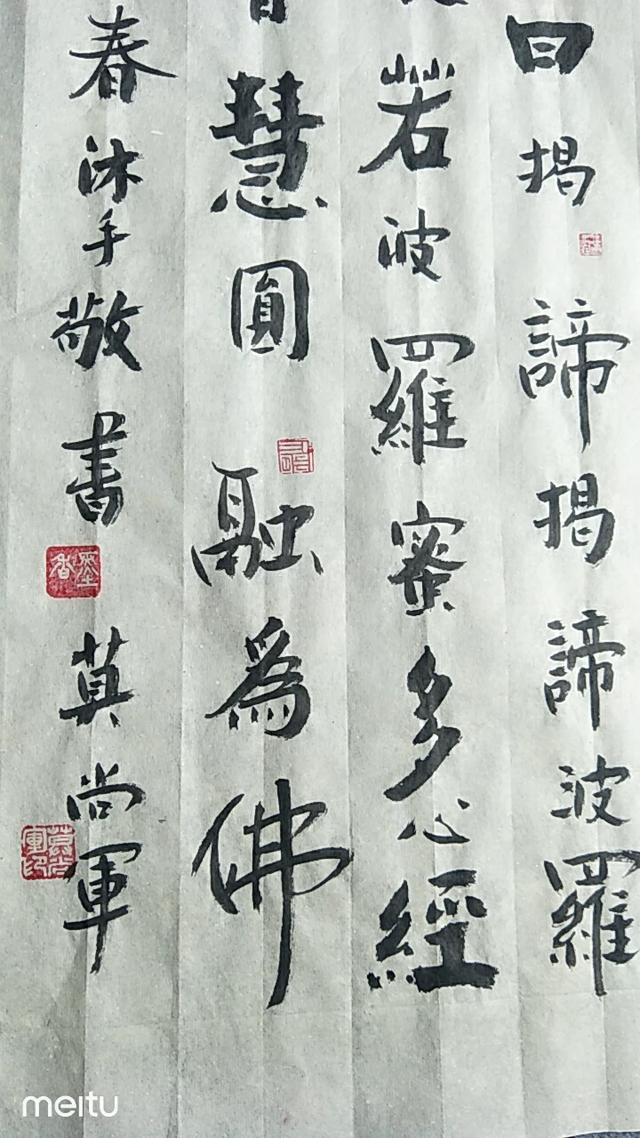 曰揭諦揭諦波羅
若波羅蜜多心經
慧圓融為佛
春沐手敬書莫尚軍
墨香
莫尚軍印
meitu